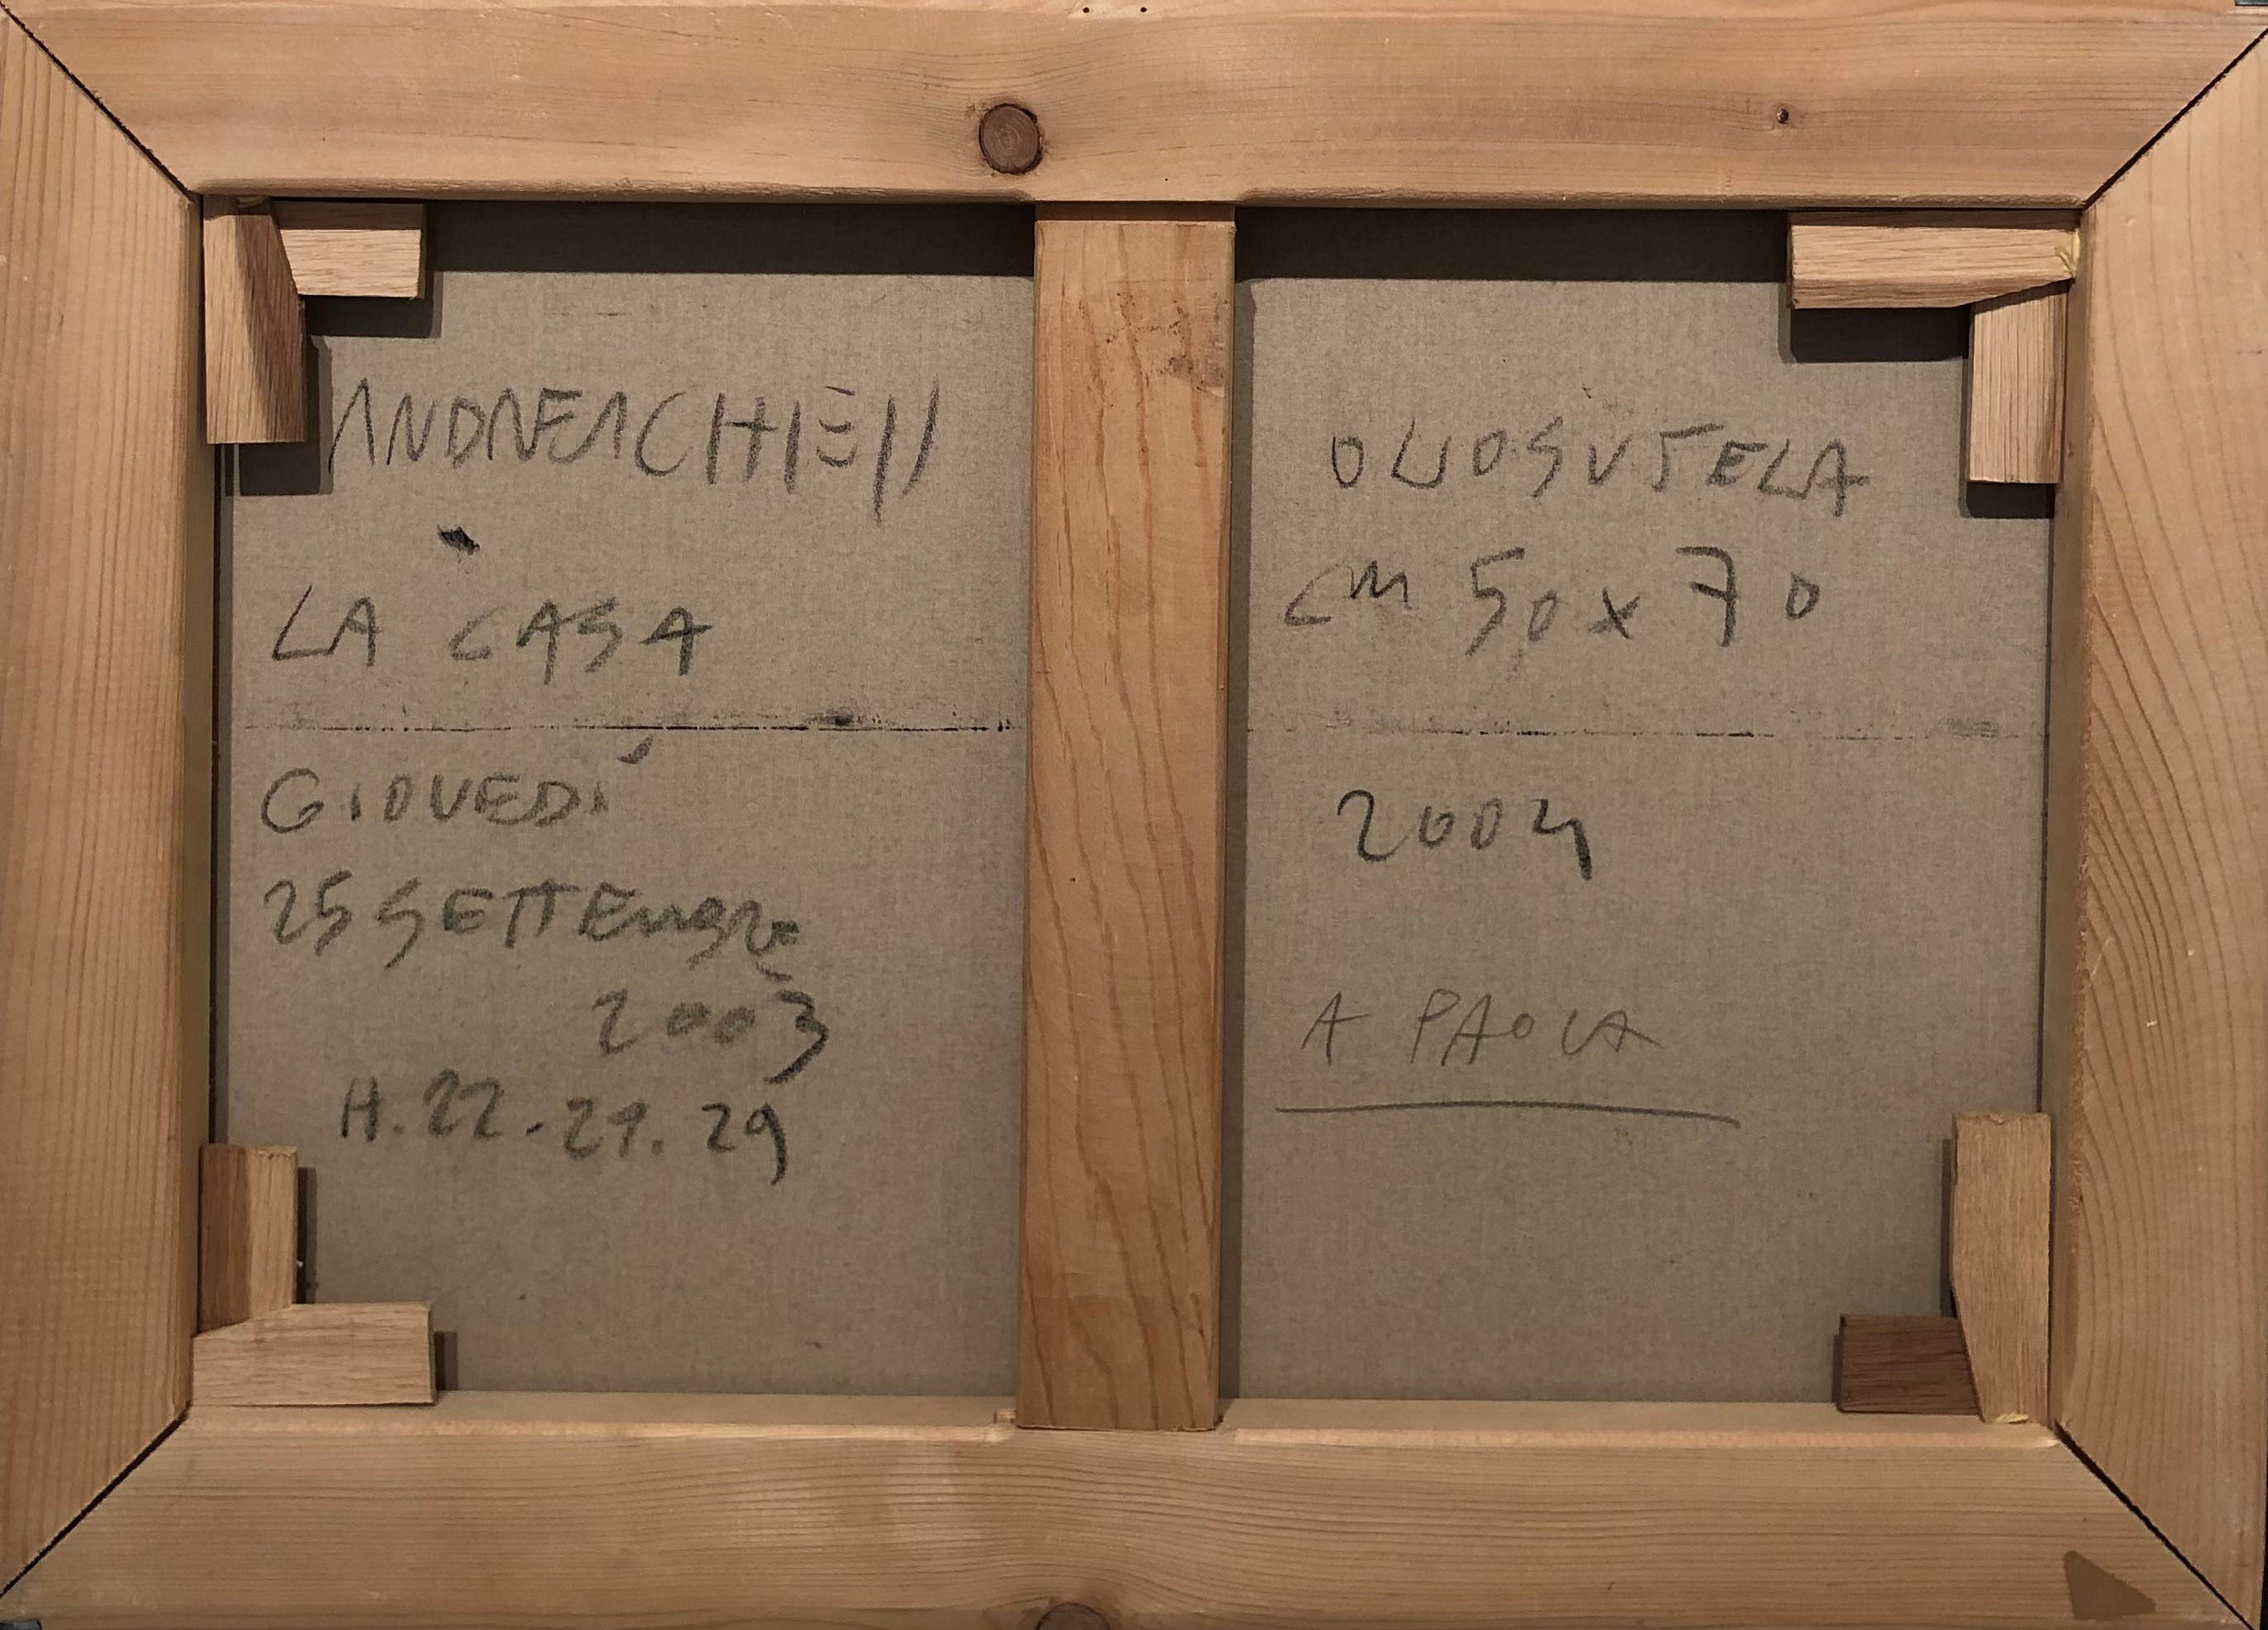 ANDREA CHIESI
LA CASA
GIOVEDÌ
25 SETTEMBRE
2003
H. 22. 21. 29
OLIO SU TELA
cm 50 x 70
2004
A PAOLA